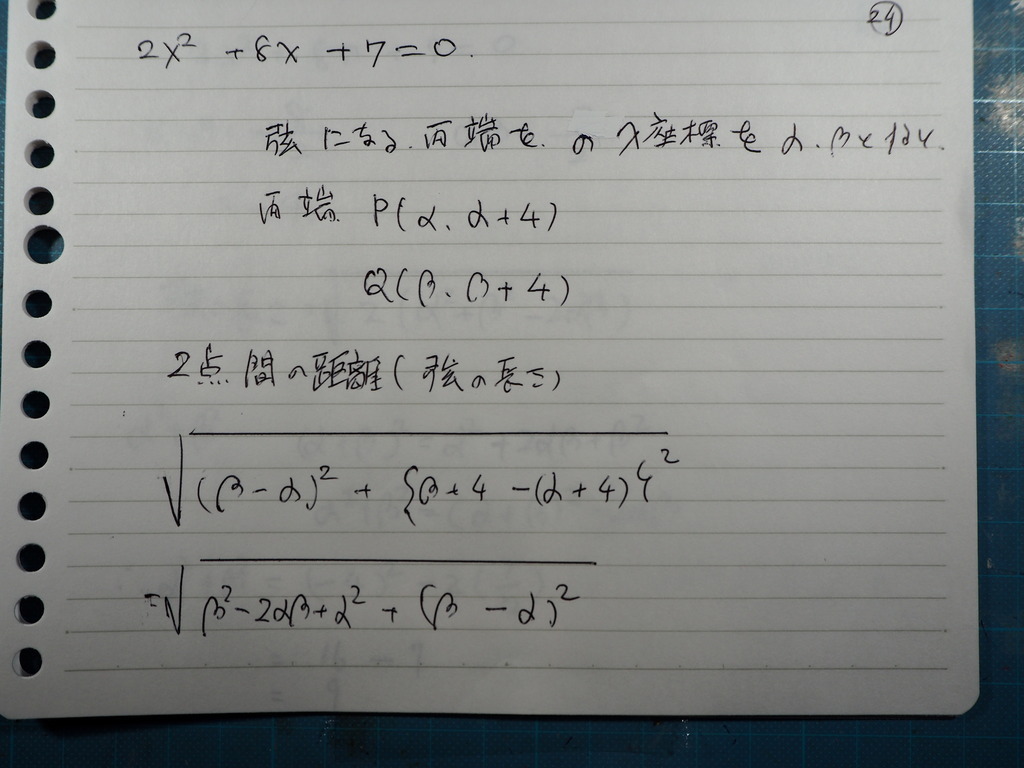 24
2x² + 8x + 7 = 0.
弦になる.両端を.のx座標をα.βとおく.
両端 P(α、α+4)
Q(β、β+4)
2点間の距離(弦の長さ)
√(β-α)² + {β+4-(α+4)}²
=√β²-2αβ+α² + (β-α)²